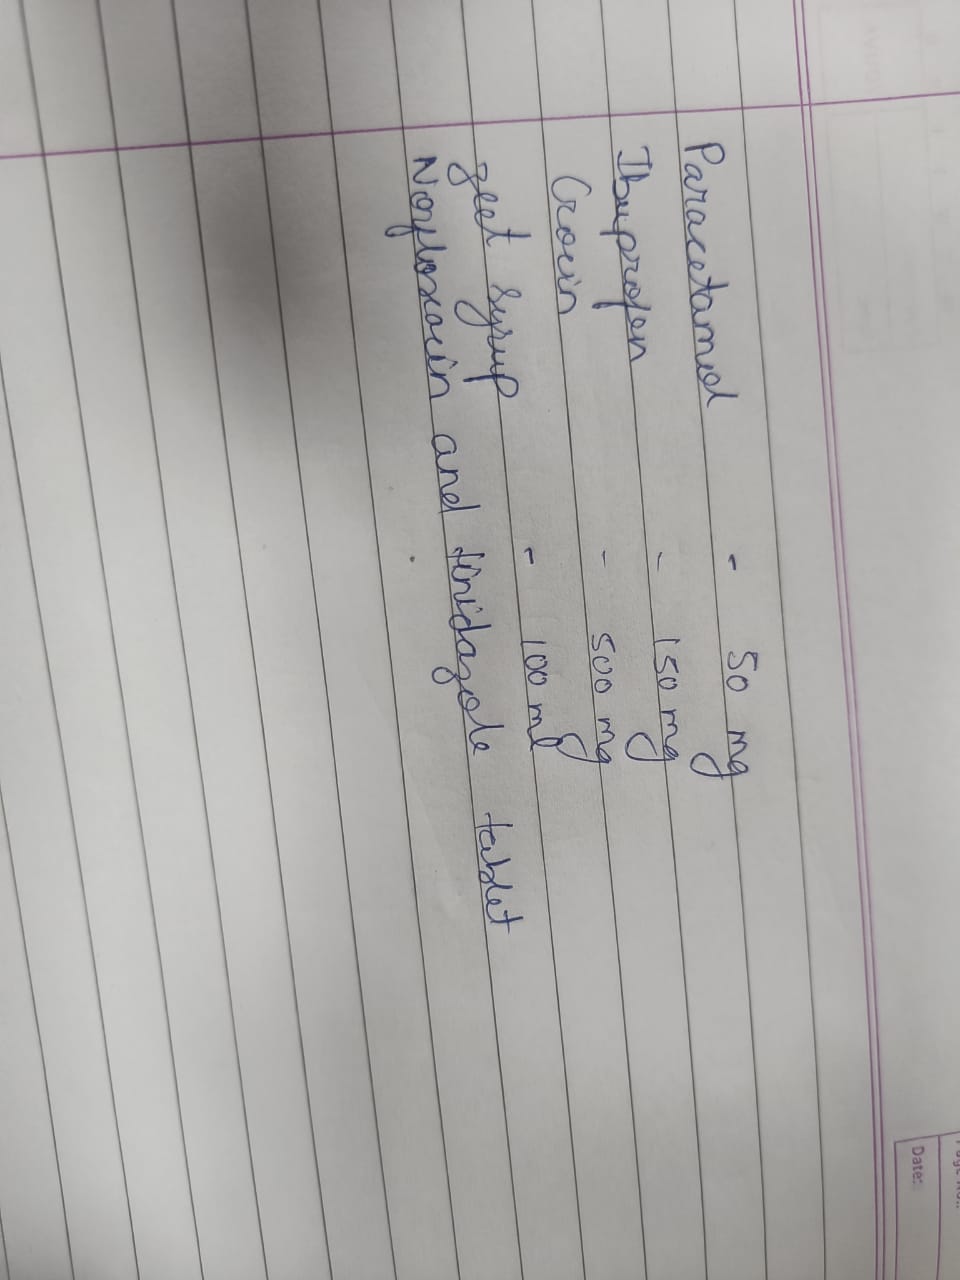 Date:
Paracetamol - 50 mg
Ibuprofen - 150 mg
Crocin - 500 mg
zeet syrup - 100 ml
Noyloxocin and tinidazole tablet